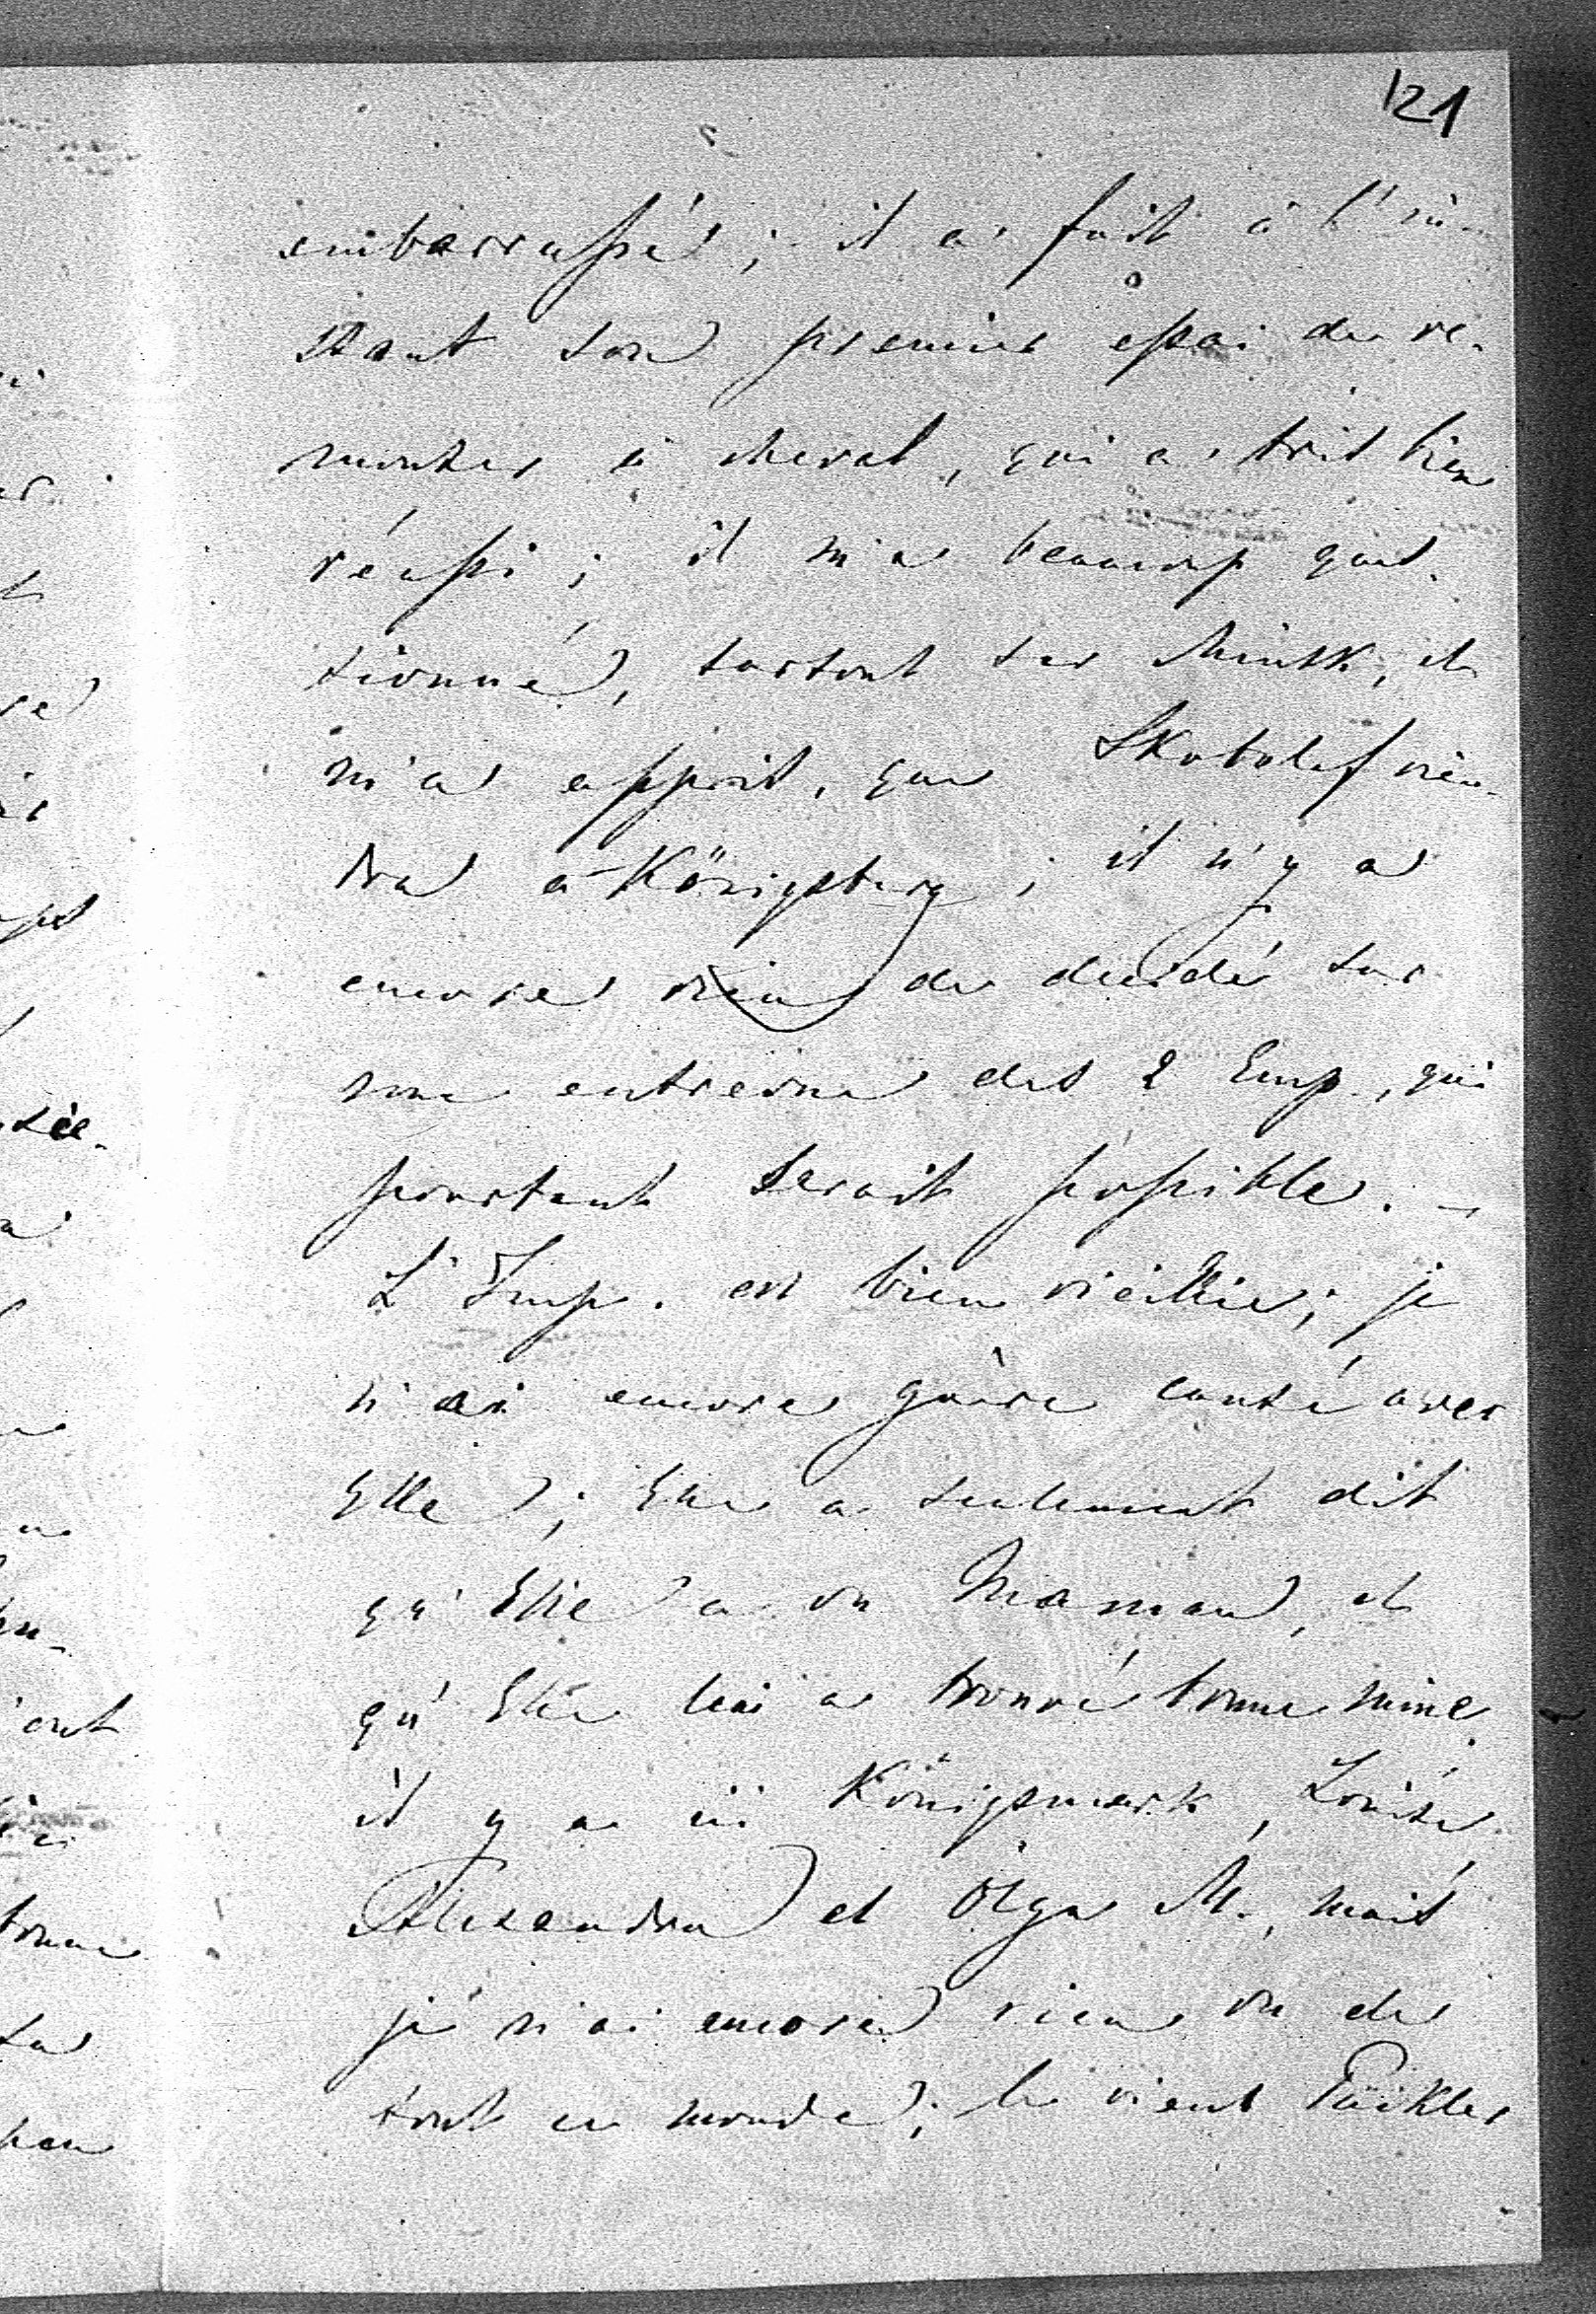 121
embarrassé; il a fait à l'in-
stant son premier essai de re-
monter à cheval, qui a très bien
réussi; il m'a beaucoup ques-
tionné, surtout sur Minsk, et
m'a appris, que Skobelef vien-
dra à Königsberg; il n'y a
encore rien de décidé sur
une entrevue des 2 Emp., qui
pourtant serait possible. –
L'Imp. est bien vieillie; je
n'ai encore guère causé avec
Elle; Elle a seulement dit
qu'Elle a vu Maman, et
qu'Elle lui a trouvé bonne mine
il y a ici Königsmark, Louise,
Alexandra et Olga M., mais
je n'ai encore rien vu de
tout ce monde; le vieux Pückler